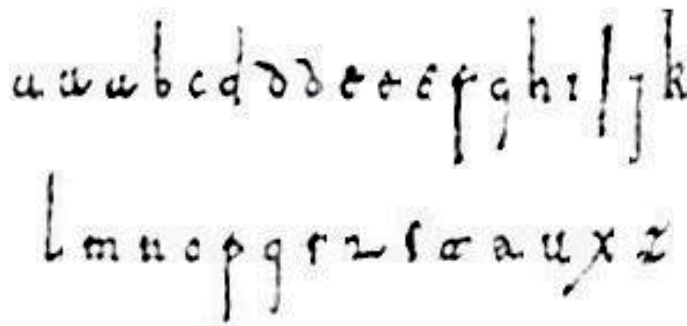 a a a b c d d d e e e f g h i l j k
l m n o p q r r s t a u x z